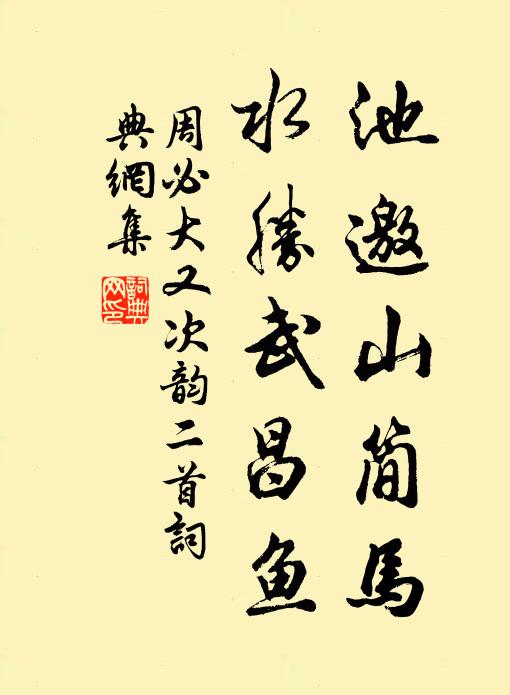 池邀山简馬
水勝武昌魚
周必大又次韵二首詞
典網集
詞典网印